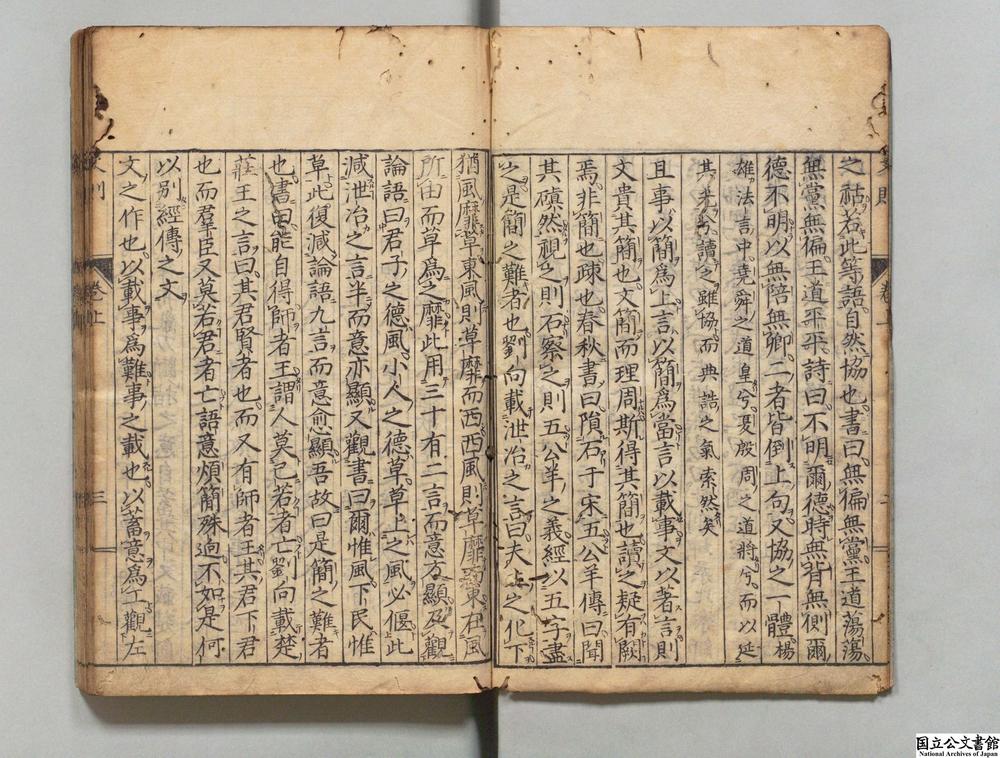 之祜若此等語自然協也書曰無偏無黨王道蕩蕩
無黨無偏王道平平詩曰不明爾德時無背無側爾
德不明以無陪無卿二者皆倒上句又協之一體楊
雄法言中堯舜之道皇兮夏殷周之道將兮而以延
其光兮讀之雖協而典誥之氣索然矣
且事以簡爲上言以簡爲當言以載事文以著言則
文貴其簡也文簡而理周斯得其簡也讀之疑有闕
焉非簡也疎也春秋書曰隕石于宋五公羊傳曰聞
其磌然視之則石察之則五公羊之義經以五字盡
之是簡之難者也劉向載泄冶之言曰夫上之化下
猶風靡草東風則草靡而西西風則草靡而東在風
所由而草爲之靡此用三十有二言而意方顯及觀
論語曰君子之德風小人之德草草上之風必偃此
減泄冶之言半而意亦顯又觀書曰爾惟風下民惟
草此復減論語九言而意愈顯吾故曰是簡之難者
也書曰能自得師者王謂人莫己若者亡劉向載楚
莊王之言曰其君賢者也而又有師者王其君下君
也而羣臣又莫若君者亡語意煩簡殊逈不如是何
以別經傳之文
文之作也以載事爲難事之載也以蓄意爲工觀左
卷上
三
国立公文書館
National Archives of Japan